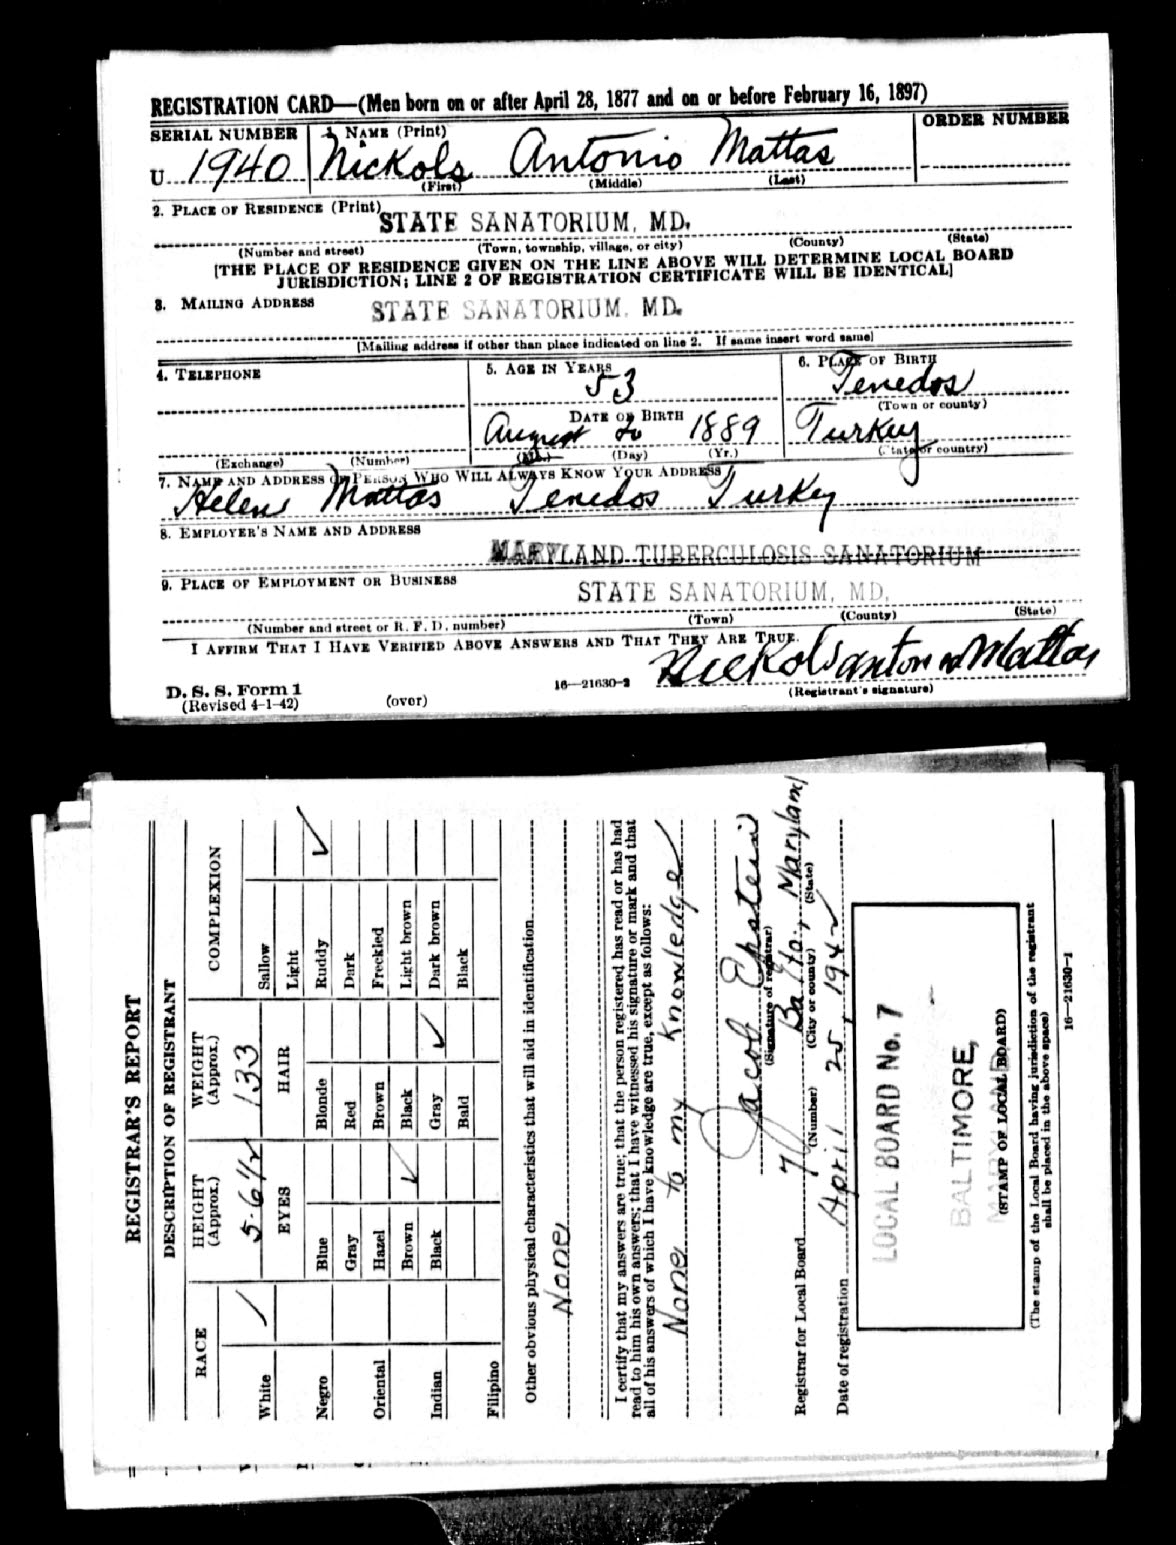 REGISTRATION CARD—(Men born on or after April 28, 1877 and on or before February 16, 1897)
SERIAL NUMBER 1. NAME (Print) ORDER NUMBER
U 1940 Nickols Antonio Mattas
(First) (Middle) (Last)
2. PLACE OF RESIDENCE (Print)
STATE SANATORIUM, MD.
(Number and street) (Town, township, village, or city) (County) (State)
[THE PLACE OF RESIDENCE GIVEN ON THE LINE ABOVE WILL DETERMINE LOCAL BOARD
JURISDICTION; LINE 2 OF REGISTRATION CERTIFICATE WILL BE IDENTICAL]
3. MAILING ADDRESS
STATE SANATORIUM, MD.
[Mailing address if other than place indicated on line 2. If same insert word same]
4. TELEPHONE 5. AGE IN YEARS 6. PLACE OF BIRTH
53 Tenedos
DATE OF BIRTH (Town or county)
August 1889 Turkey
(Exchange) (Number) (Mo.) (Day) (Yr.) (State or country)
7. NAME AND ADDRESS OF PERSON WHO WILL ALWAYS KNOW YOUR ADDRESS
Helen Mattas Tenedos Turkey
8. EMPLOYER'S NAME AND ADDRESS
MARYLAND TUBERCULOSIS SANATORIUM
9. PLACE OF EMPLOYMENT OR BUSINESS
STATE SANATORIUM, MD.
(Number and street or R. F. D. number) (Town) (County) (State)
I AFFIRM THAT I HAVE VERIFIED ABOVE ANSWERS AND THAT THEY ARE TRUE.
Nickols Antonio Mattas
D. S. S. Form 1
(Revised 4-1-42) (over) 16—21630-2 (Registrant's signature)
REGISTRAR'S REPORT
DESCRIPTION OF REGISTRANT
RACE HEIGHT (Approx.) WEIGHT (Approx.) COMPLEXION
White ✓ 5-6½ 133 Sallow
EYES HAIR Light
Negro Blue Blonde Ruddy ✓
Gray Red Dark
Oriental Hazel Brown Freckled
Brown ✓ Black Light brown
Indian Black Gray ✓ Dark brown
Bald Black
Filipino
Other obvious physical characteristics that will aid in identification
None
I certify that my answers are true; that the person registered has read or has had
read to him his own answers; that I have witnessed his signature or mark and that
all of his answers of which I have knowledge are true, except as follows:
None to my knowledge
Jacob Epstein
(Signature of registrar)
Registrar for Local Board 7 Balto., Maryland
(Number) (City or county) (State)
Date of registration April 25, 1942
LOCAL BOARD No. 7
BALTIMORE,
MARYLAND
(STAMP OF LOCAL BOARD)
(The stamp of the Local Board having jurisdiction of the registrant
shall be placed in the above space)
16—21630-1